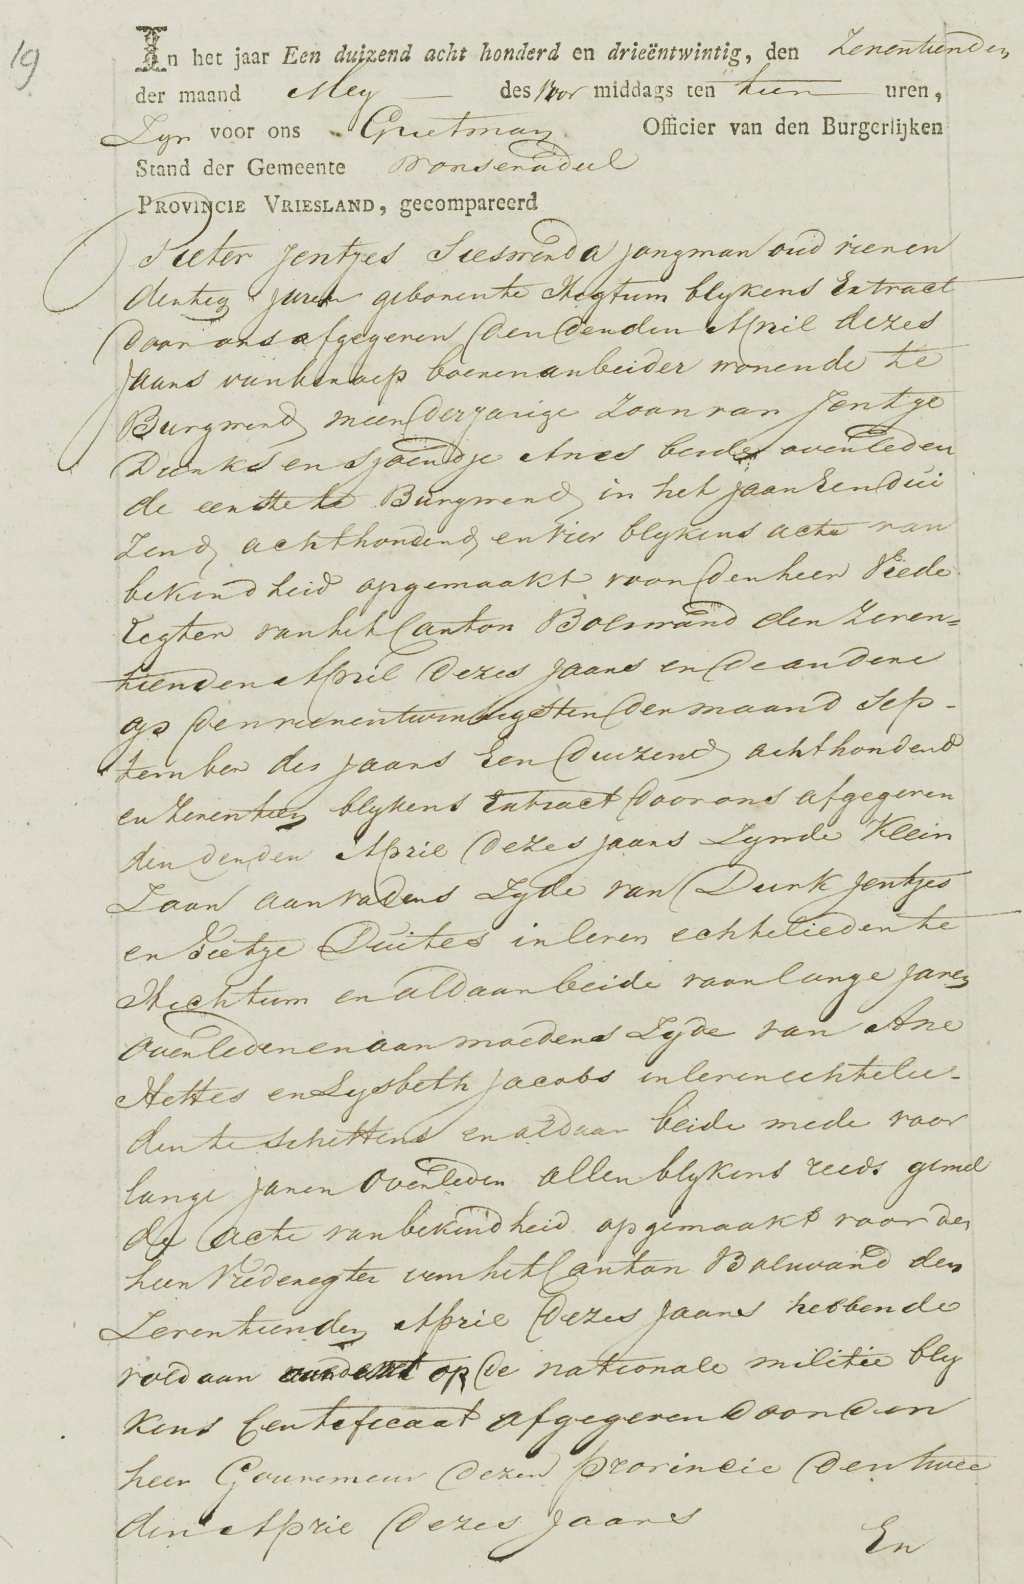 19
In het jaar Een duizend acht honderd en drieëntwintig, den Zeventienden
der maand Mey des Voor middags ten tien uren,
Zyn voor ons Grietman Officier van den Burgerlijken
Stand der Gemeente Wonseradeel
PROVINCIE VRIESLAND, gecompareerd
Pieter Jentjes Sieswerda jongman oud vieren
dertig jaren geboren te Hegtum blykens Extract
door ons afgegeven den derden April dezes
Jaars van beroep boerenarbeider wonende te
Burgwerd meerderjarige Zoon van Jentje
Durks en Sjoerdje Anes beide overleden
de eerste te Burgwerd in het jaar Een dui
zend achthonderd en vier blykens acte van
bekendheid opgemaakt voor den heer Vrede
regter van het Canton Bolsward den Zeven=
tienden April dezes jaars en de andere
op den vierentwintigsten der maand Sep-
tember des jaars Een duizend achthonderd
en Zeventien blykens Extract door ons afgegeven
den derden April dezes jaars Zynde Klein
Zoon aan vaders Zyde van Durk Jentjes
en Tietje Duites in leven echtelieden te
Hichtum en aldaar beide voor lange jaren
overleden en aan moeders Zyde van Ane
Hettes en Lysbeth Jacobs in leven echtelie-
den te Schettens en aldaar beide mede voor
lange jaren overleden allen blykens reeds gemel
de acte van bekendheid opgemaakt voor den
heer Vrederegter van het Canton Bolsward den
Zeventienden April dezes jaars hebbende
voldaan op de nationale militie bly
kens Certificaat afgegeven door den
heer Gouverneur dezer provincie den twee
den April dezes jaars
En